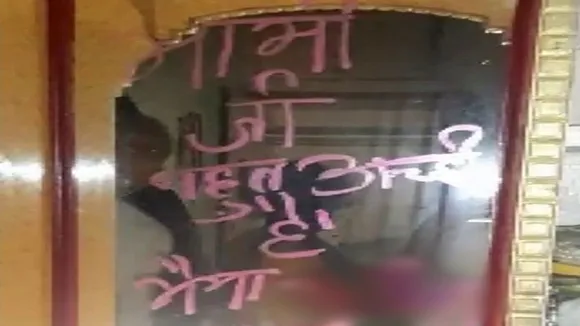 भाभी
जी
बहुत अच्छी
हैं
भैया